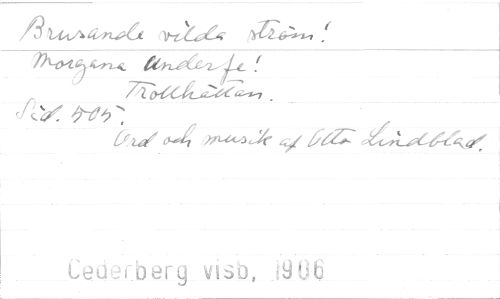 Brusande vilda ström!
Morgana Underfe!
Trollhättan.
Sid. 505.
Ord och musik af Otto Lindblad.
Cederberg visb, 1906